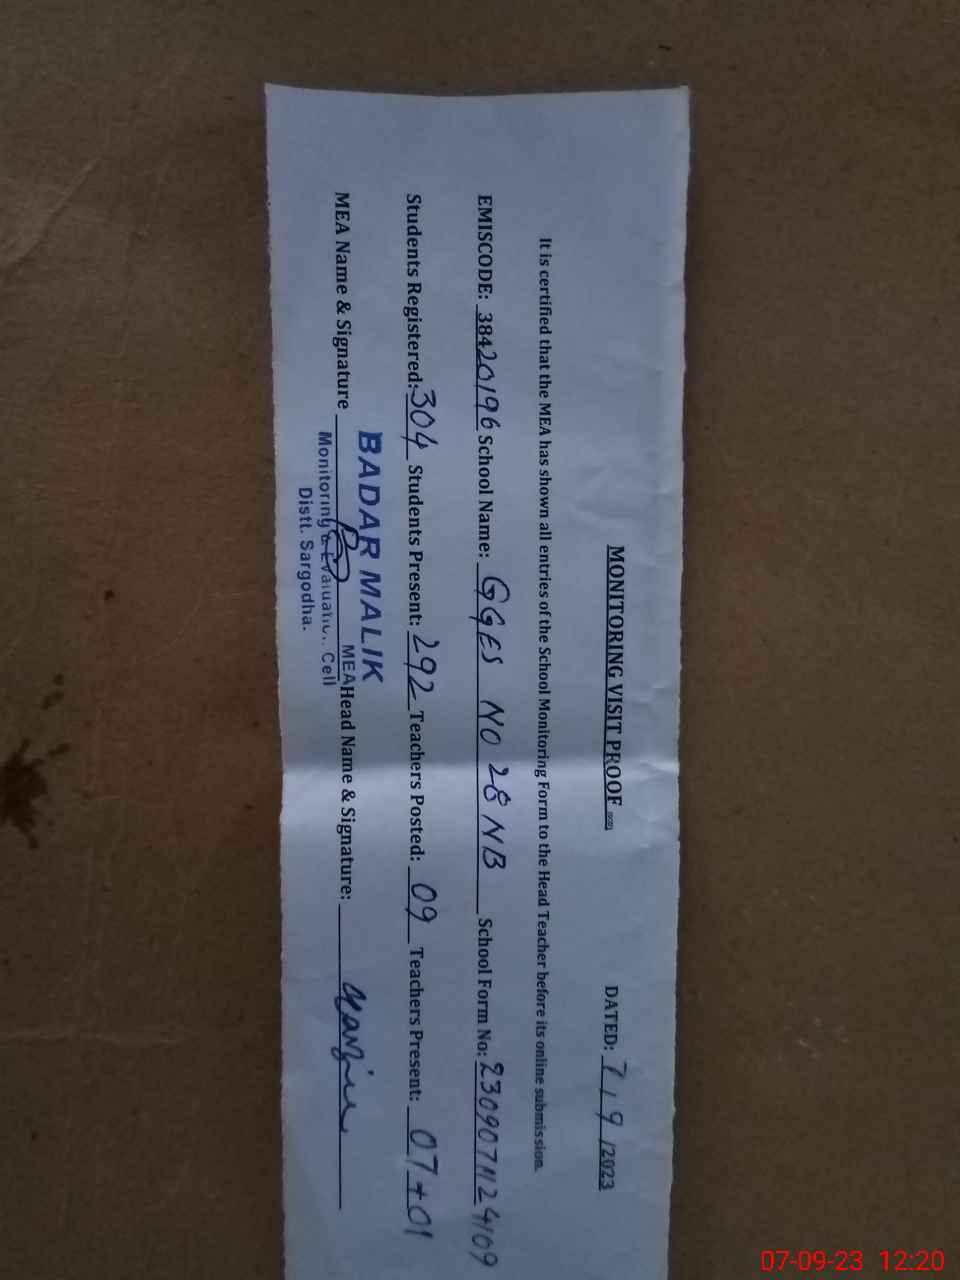 MONITORING VISIT PROOF
DATED: 7/9/2023
It is certified that the MEA has shown all entries of the School Monitoring Form to the Head Teacher before its online submission.
EMISCODE: 38420196 School Name: GGES NO 28 NB School Form No: 2309071124109
Students Registered: 304 Students Present: 292 Teachers Posted: 09 Teachers Present: 07+01
MEA Name & Signature Head Name & Signature:
BADAR MALIK
MEA
Monitoring & Evaluatio.. Cell
Distt. Sargodha.
07-09-23 12:20